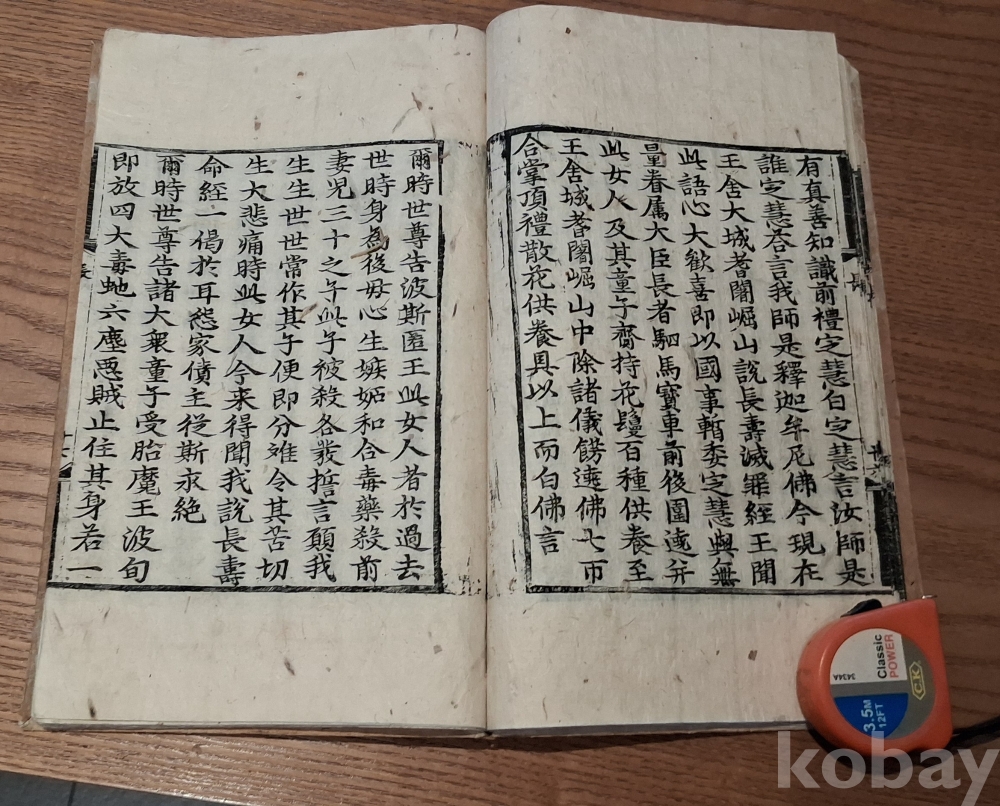 有真善知識前禮定慧白定慧言汝師是
誰定慧答言我師是釋迦牟尼佛今現在
王舍大城耆闍崛山說長壽滅罪經王聞
此語心大歡喜即以國事暫委定慧與無
量眷属大臣長者駟馬寶車前後圍遶并
此女人及其童子齎持花鬘百種供養至
王舍城耆闍崛山中除諸儀餝遶佛七帀
合掌頂禮散花供養具以上而白佛言
爾時世尊告波斯匿王此女人者於過去
世時身為後母心生嫉妬和合毒藥殺前
妻兒三十之子此子被殺各發誓言願我
生生世世常作其子便即分難令其苦切
生大悲痛時此女人今来得聞我說長壽
命經一偈於耳怨家債主從斯永絶
爾時世尊告諸大衆童子受胎魔王波旬
即放四大毒虵六塵惡賊止住其身若一
長
長
Classic
POWER
3434A
C.K
3.5M
12FT
kobay